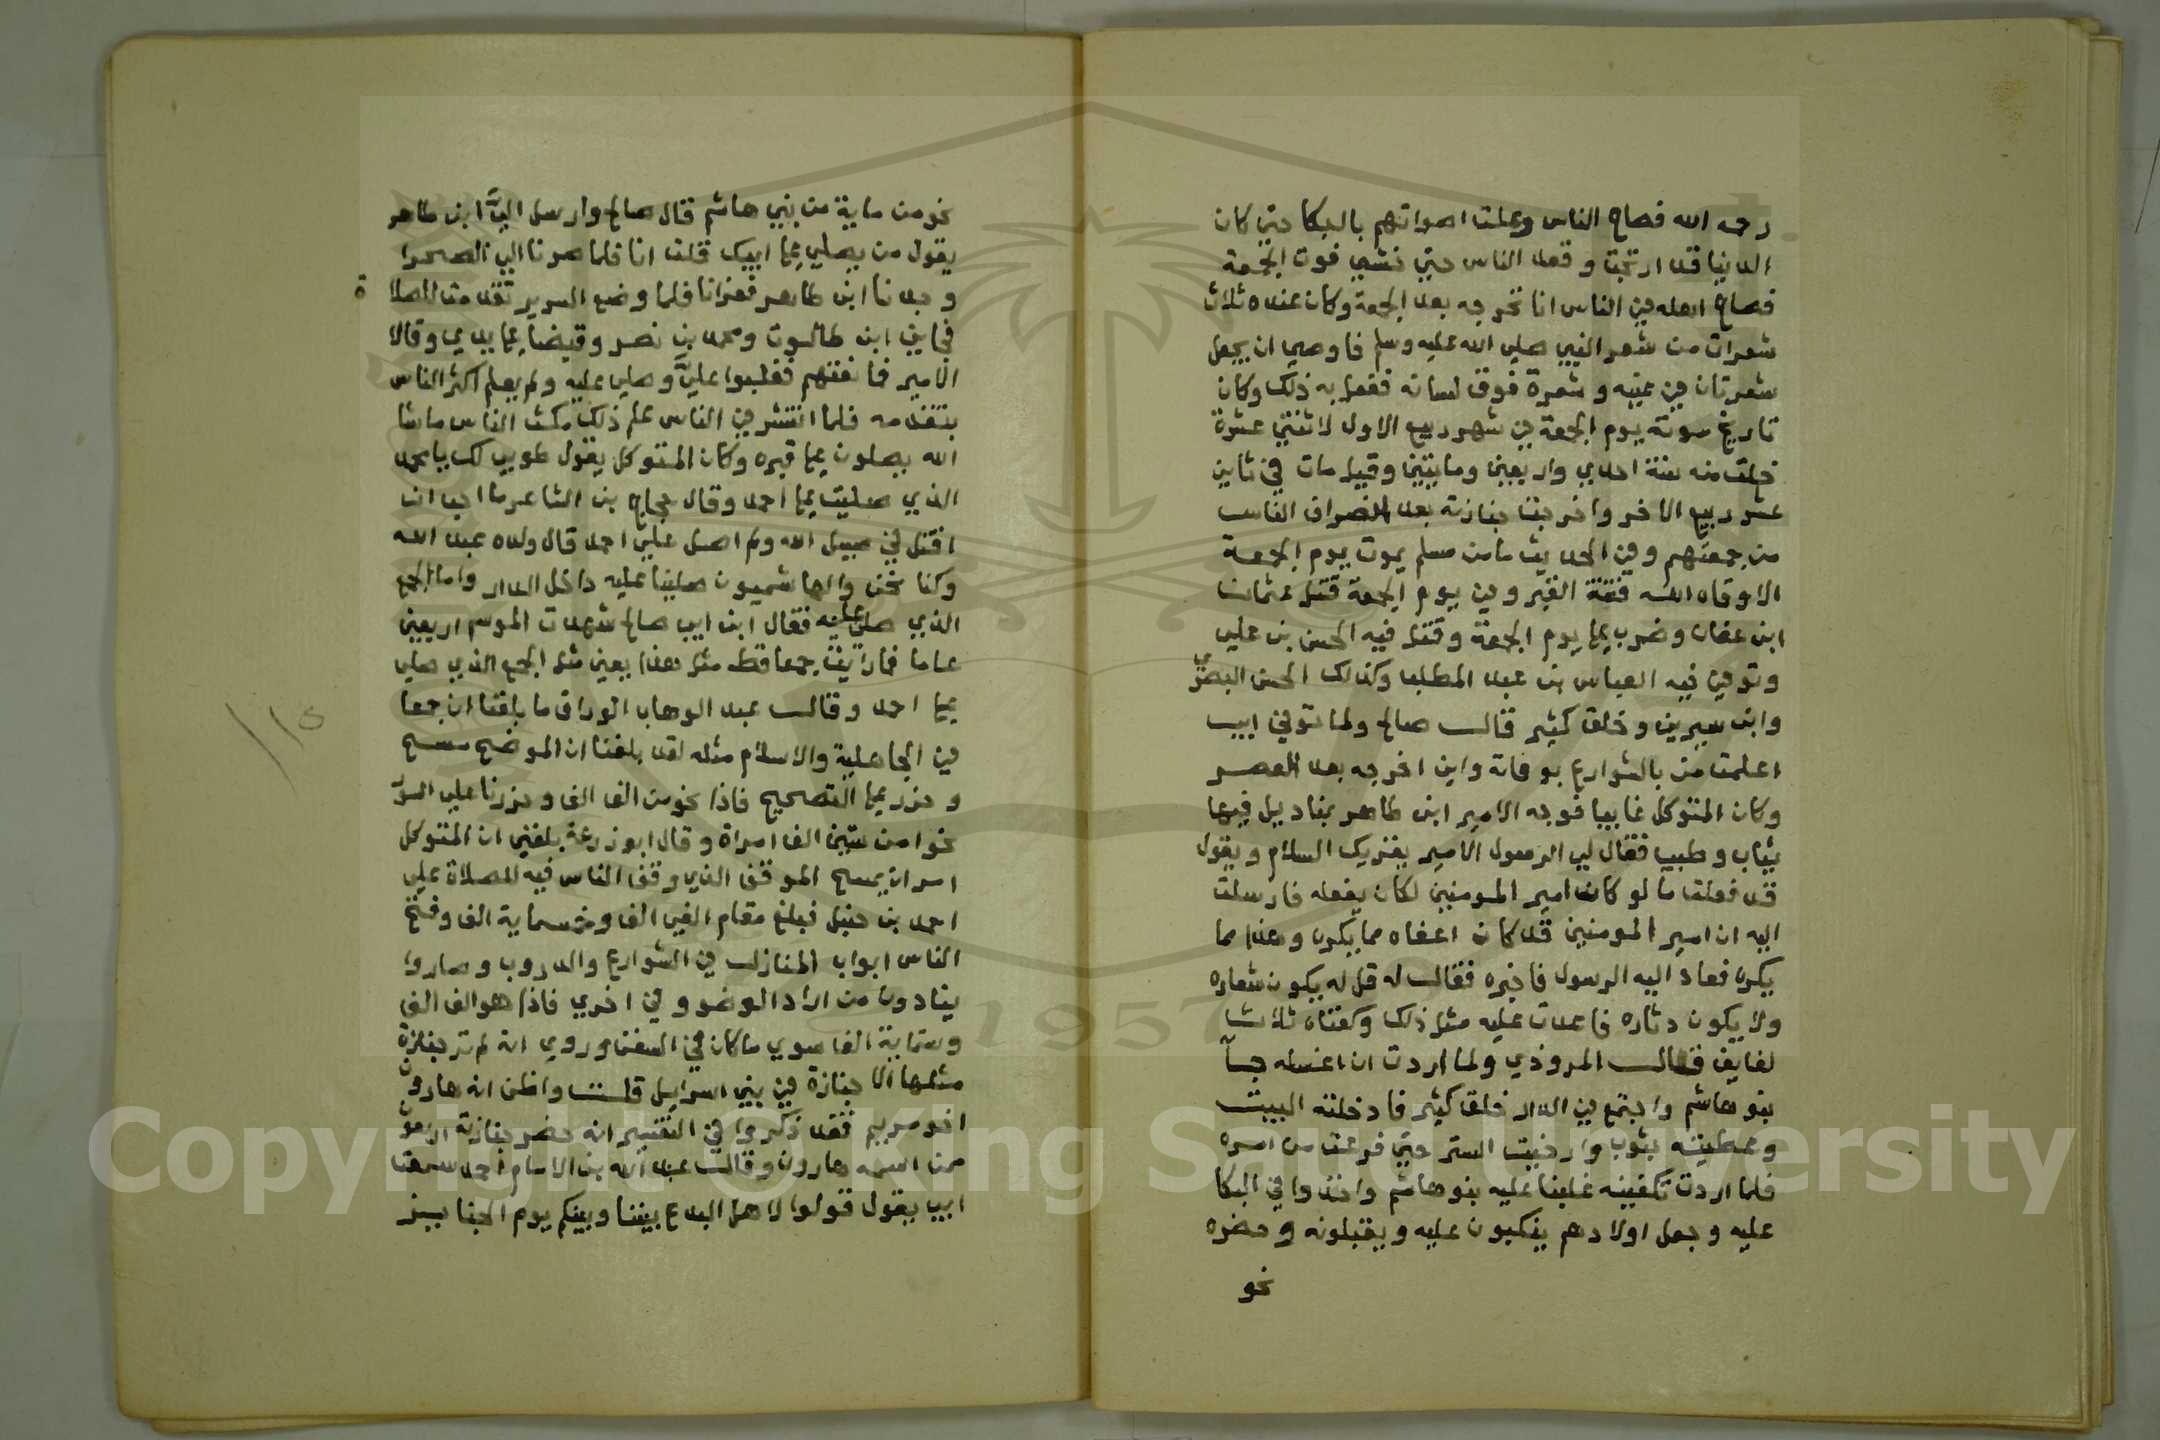 رحمه الله فصاح الناس وعلت اصواتهم بالبكا حتي كان
الدنيا قد ارتجت وقعد الناس حتي خشي فوت الجمعة
فصاح اهله في الناس انا نخرجه بعد الجمعة وكان عنده ثلاث
شعرات من شعر النبي صلي الله عليه وسلم فاوصي ان يجعل
شعرتان في عينيه وشعرة فوق لسانه ففعل به ذلك وكان
تاريخ موته يوم الجمعة في شهر ربيع الاول لاثنتي عشرة
خلت منه سنة احدي واربعين ومايتين وقيل مات في ثاني
عشر ربيع الاخر واخرجت جنازته بعد انصراف الناس
من جمعتهم وفي الحديث ما من مسلم يموت يوم الجمعة
الا وقاه الله فتنة القبر وفي يوم الجمعة قتل عثمان
ابن عفان وضرب علي يوم الجمعة وقتل فيه الحسن بن علي
وتوفي فيه العباس بن عبد المطلب وكذلك الحسن البصري
وابن سيرين وخلق كثير قال صالح ولما توفي ابي
اعلمت من بالشوارع بوفاته واين اخرجه بعد العصر
وكان المتوكل غايبا فوجه الامير ابن طاهر بمناديل فيها
بثياب وطيب فقال لي الرسول الامير يقريك السلام ويقول
قد فعلت ما لو كان امير المومنين لكان يفعله فارسلت
اليه ان امير المومنين قد كان اعفاه مما يكره وهذا مما
يكره فعاد اليه الرسول فاخبره فقال له قل له يكون شعاره
ولا يكون دثاره فاعدت عليه مثل ذلك وكفناه ثلاث
لفايف قال المروذي ولما اردت ان اغسله جا
بنو هاشم واجتمع في الدار خلق كثير فادخلته البيت
وغطيته بثوب وارخيت الستر حتي فرغت من امره
فلما اردت تكفينه غلبنا عليه بنو هاشم واخذوا في البكا
عليه وجعل اولادهم ينكبون عليه ويقبلونه وحضره
نحو
نحو من ماية من بني هاشم قال صالح وارسل الي ابن طاهر
يقول من يصلي علي ابيك قلت انا فلما صرنا الي الصحرا
وجدنا ابن طاهر فعزانا فلما وضع السرير تقدمت للصلا
ة
فجاني ابن طالوت ومحمد بن نصر وقبضا علي يدي وقالا
الامير فمانعتهم فغلبوا علي وصلي عليه ولم يعلم اكثر الناس
بتقدمه فلما انتشر في الناس علم ذلك مكث الناس ماشا
الله يصلون علي قبره وكان المتوكل يقول طوبي لك يا محمد
الذي صليت علي احمد وقال حجاج بن الشاعر ما احب ان
اقتل في سبيل الله ولم اصل علي احمد قال ولده عبد الله
وكنا نحن والهاشميون صلينا عليه داخل الدار واما الجمع
الذي صلي عليه فقال ابن ابي صالح شهدت الموسم اربعين
عاما فما رايت جمعا قط مثل هذا يعني مثل الجمع الذي صلي
علي احمد وقال عبد الوهاب الوراق ما بلغنا ان جمعا
في الجاهلية والاسلام مثله لقد بلغنا ان الموضع مسح
وحزر علي التصحيح فاذا نحو من الف الف وحزرنا علي السور
نحوا من ستين الف امراة وقال ابو زرعة بلغني ان المتوكل
امر ان يمسح الموقف الذي وقف الناس فيه للصلاة علي
احمد بن حنبل فبلغ مقام الفي الف وخمسماية الف وفتح
الناس ابواب المنازل في الشوارع والدروب وصاروا
ينادون من اراد الوضو وفي اخري فاذا هو الف الف
وستماية الف سوي ما كان في السفن وروي انه لم تر جنازة
مثلها الا جنازة في بني اسرايل قلت واظن انه هارون
اخو مريم فقد ذكروا في التفسير انه حضر جنازته اربعون
ممن اسمه هارون وقال عبد الله بن الامام احمد سمعت
ابي يقول قولوا لاهل البدع بيننا وبينكم يوم الجنايز
١١٥
Copyright © King Saud University
1957